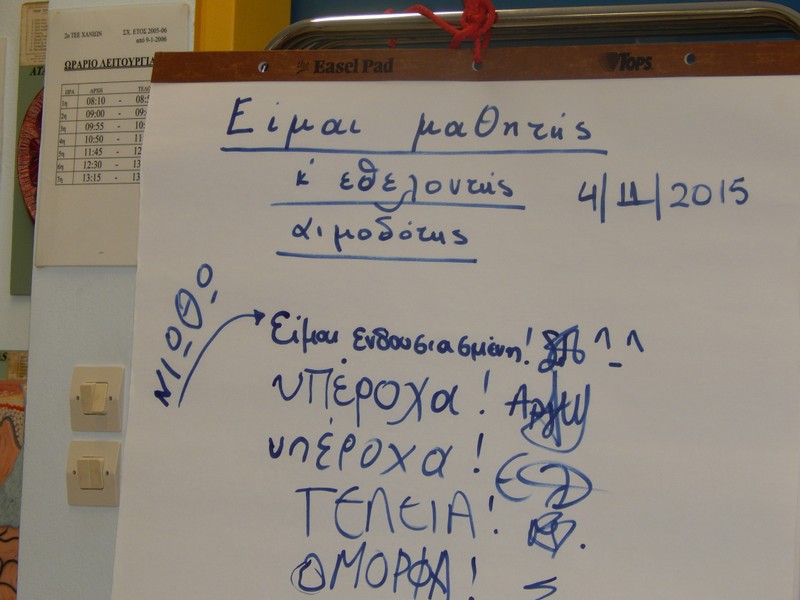 2ο ΤΕΕ ΧΑΝΙΩΝ ΣΧ. ΕΤΟΣ 2005-06
από 9-1-2006
ΩΡΑΡΙΟ ΛΕΙΤΟΥΡΓΙΑ
ΩΡΑ ΑΡΧΗ
1η 08:10 -
2η 09:00 -
3η 09:55 -
4η 10:50 -
5η 11:45 -
6η 12:30 -
7η 13:15 -
Easel Pad
TOPS
Είμαι μαθητής
κ' εθελοντής
4/11/2015
αιμοδότης
ΝΙΩΘΩ
Είμαι ενθουσιασμένη! ^_^
υπέροχα!
υπέροχα!
ΤΕΛΕΙΑ!
ΟΜΟΡΦΑ!